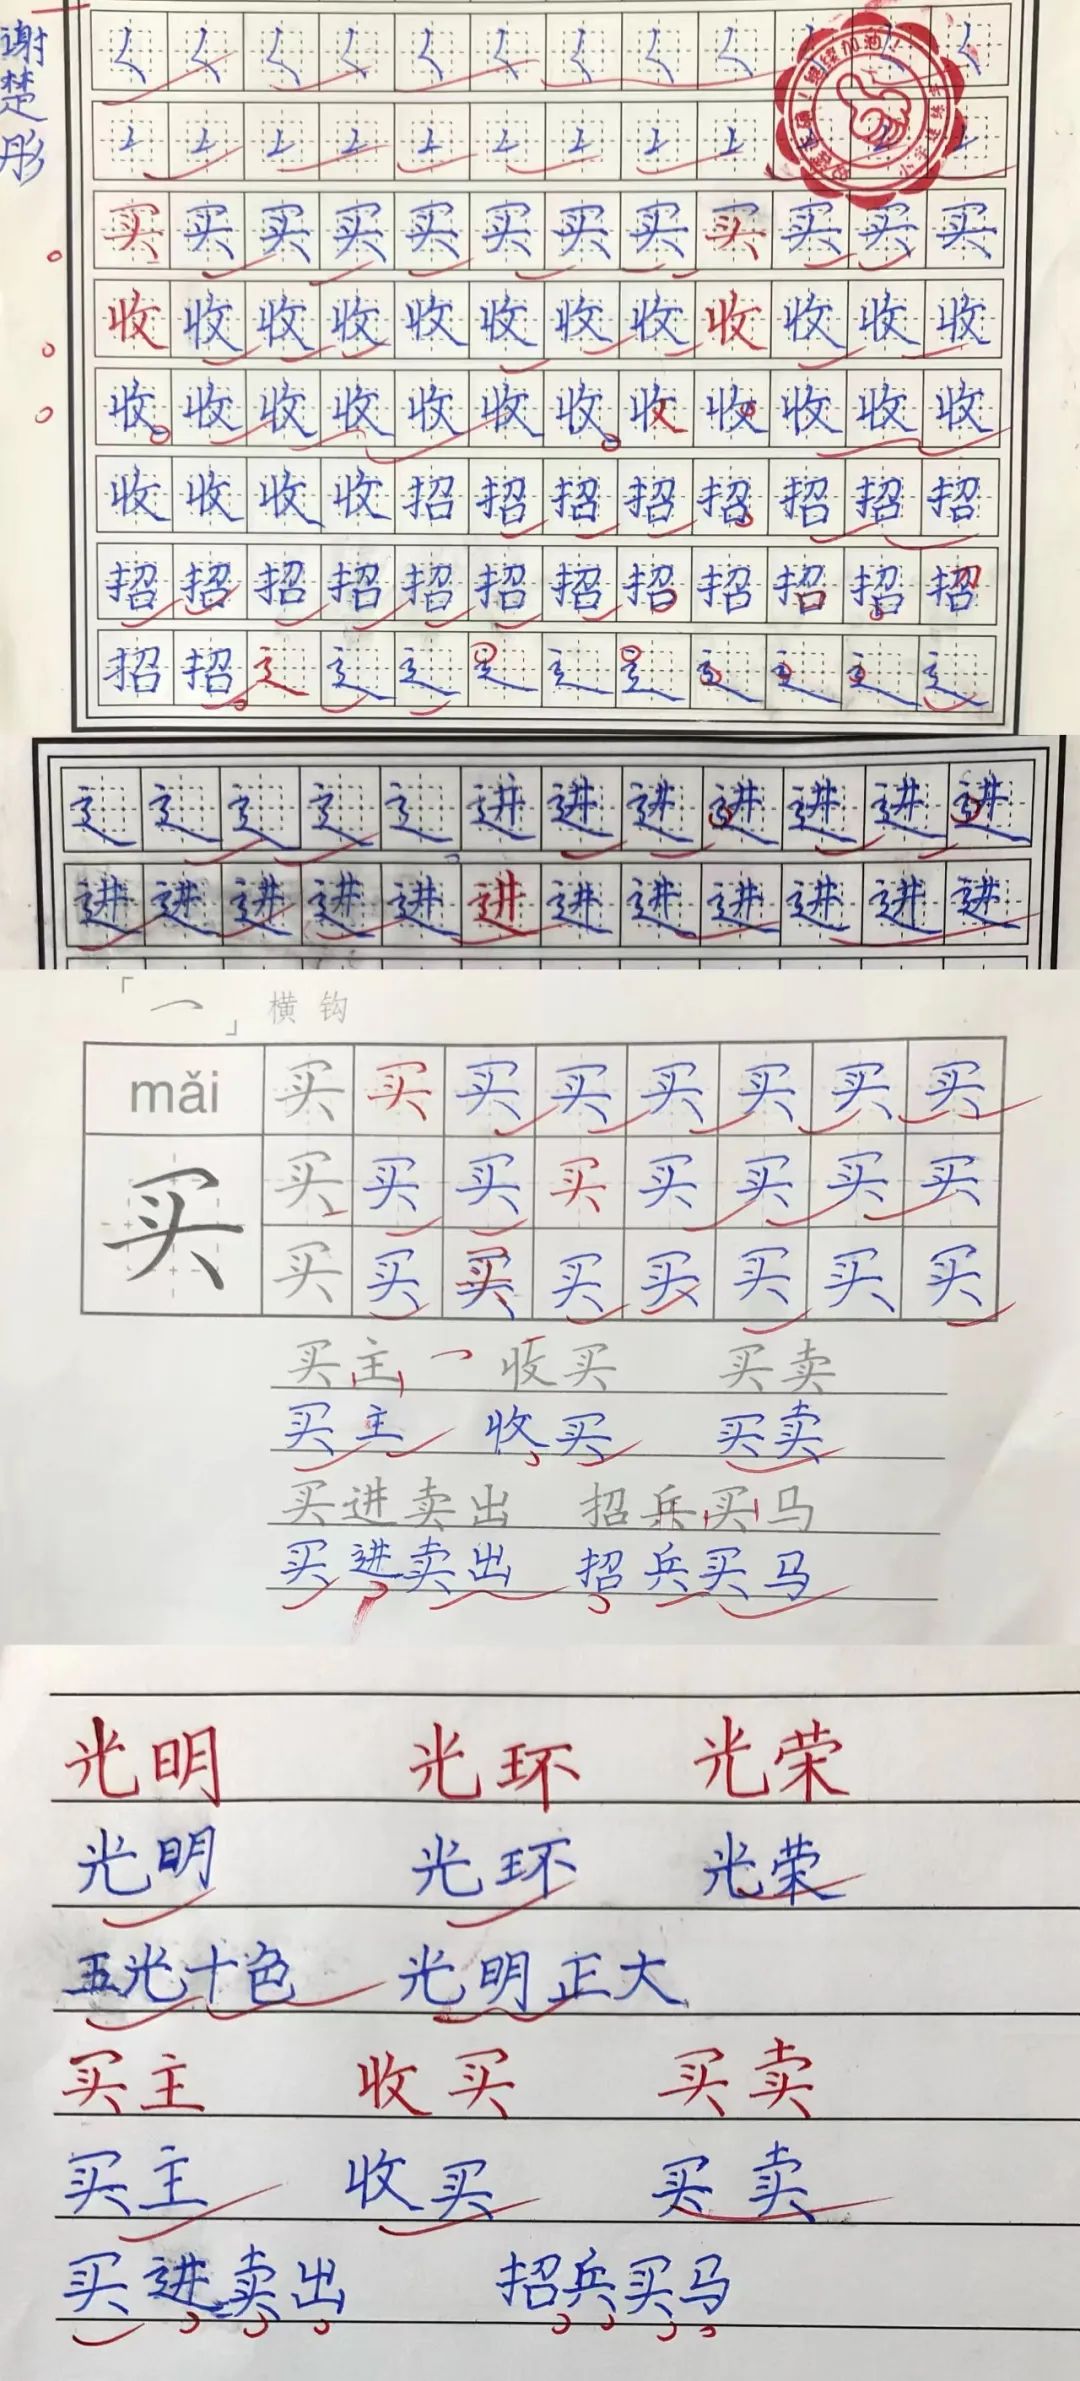 谢楚彤
买买买买买买买买买买买买
收收收收收收收收收收收收
收收收收收收收收收收收收
收收收收招招招招招招招招
招招招招招招招招招招招招
招招辶辶辶辶辶辶辶辶辶辶
辶辶辶辶辶进进进进进进进
进进进进进进进进进进进进
「㇖」横钩
mǎi 买买买买买买买买
买 买买买买买买买买
买买买买买买买买
买主 收买 买卖
买主 收买 买卖
买进卖出 招兵买马
买进卖出 招兵买马
光明 光环 光荣
光明 光环 光荣
五光十色 光明正大
买主 收买 买卖
买主 收买 买卖
买进卖出 招兵买马